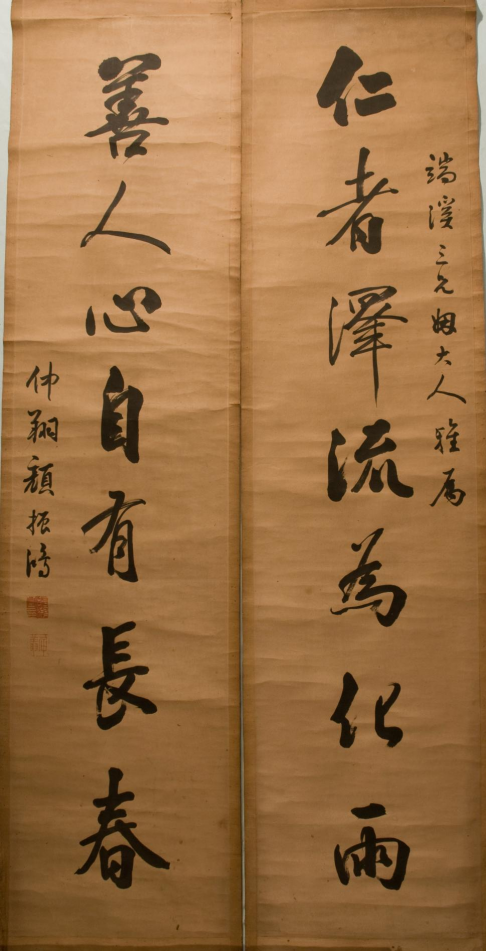 端溪三兄姻大人雅屬
仁者澤流為化雨
善人心自有長春
仲翔顧振鴻